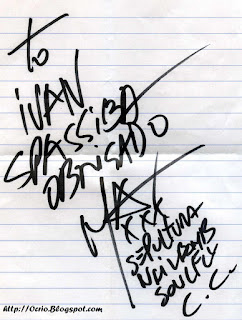 To
IVAN
SPASSIBA
OBRIGADO
MAX
XXX
SEPULTURA
NAILBOMB
SOULFLY
C.C.
http://Ocrio.Blogspot.com